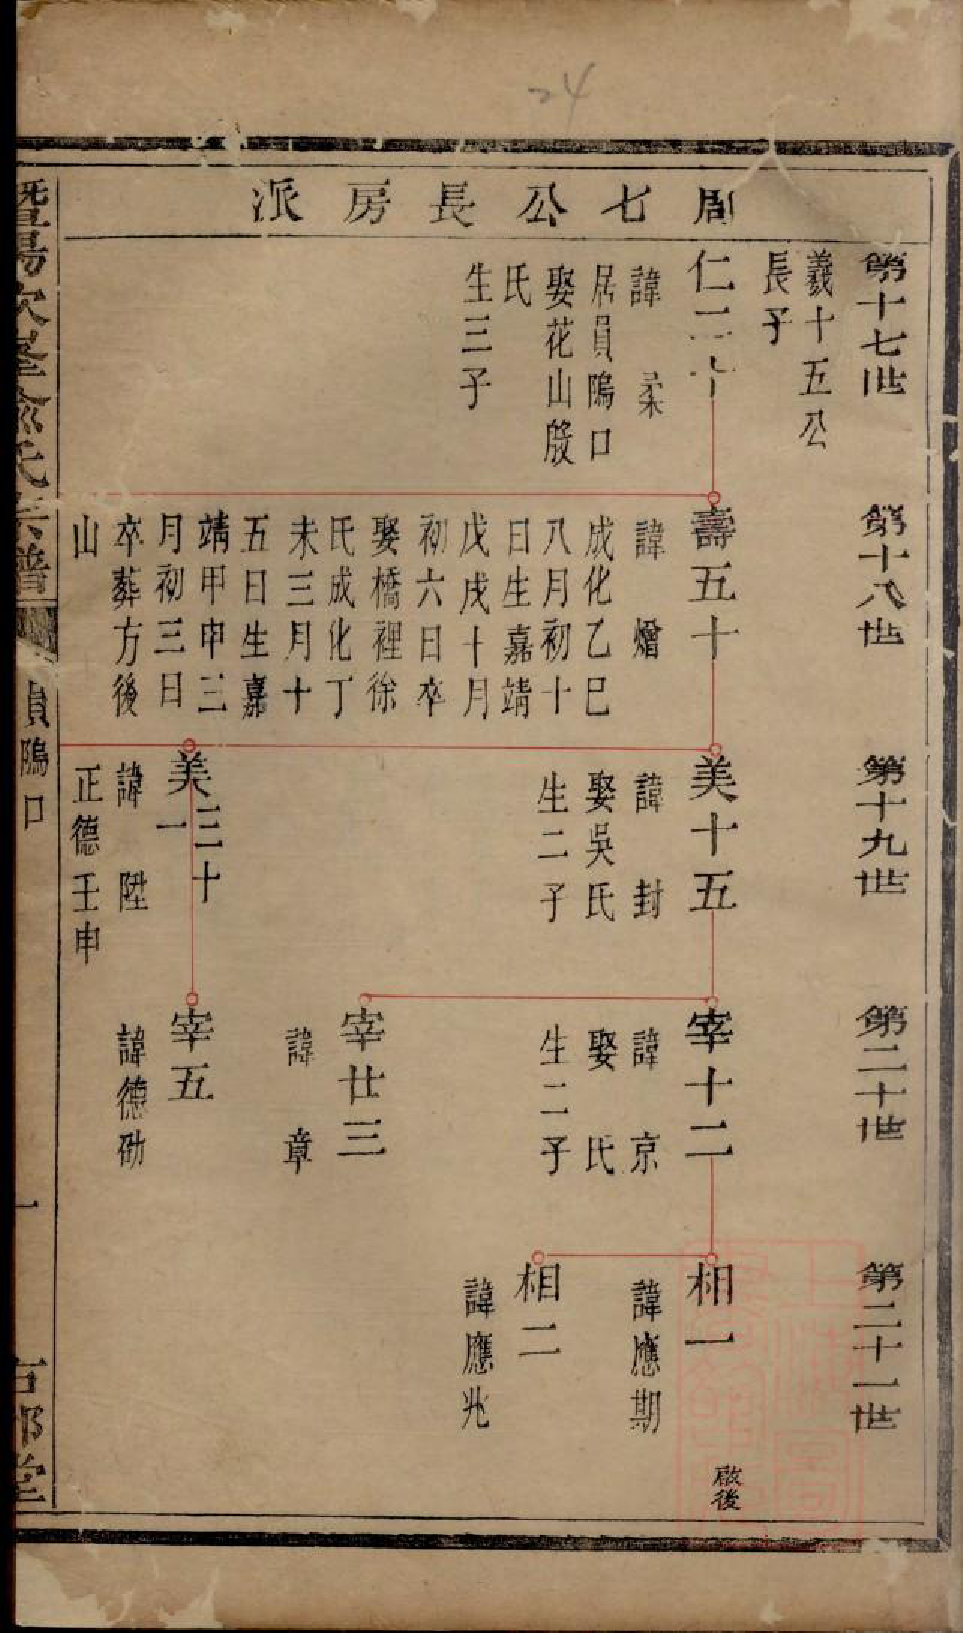 周七公長房派
第十七世
羲十五公
長子
仁二十
諱 柔
居員隖口
娶花山殷
氏
生三子
第十八世
壽五十
諱 燴
成化乙巳
八月初十
日生嘉靖
戊戌十月
初六日卒
娶橋裡徐
氏成化丁
未三月十
五日生嘉
靖甲申三
月初三日
卒葬方後
山
第十九世
美十五
諱 封
娶吳氏
生二子
美三十一
諱 陞
正德壬申
第二十世
宰十二
諱 京
娶 氏
生二子
宰廿三
諱 章
宰五
諱德劭
第二十一世
相一
諱應期
啟後
相二
諱應兆
暨陽次峯俞氏宗譜
員隖口
一